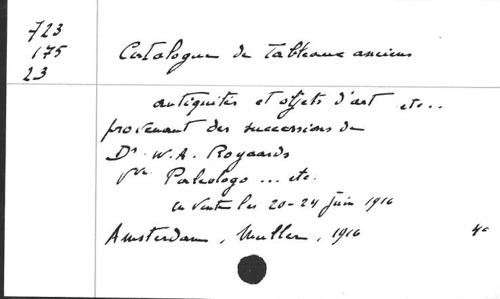 723
175
23
Catalogue de tableaux anciens
antiquités et objets d'art etc..
provenant des successions de
Dr. W. A. Royaards
Vve Paleologo ... etc.
en vente les 20-24 juin 1916
Amsterdam, Muller, 1916 4o